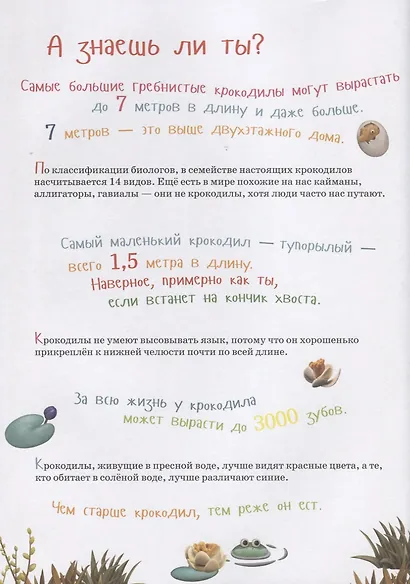 А знаешь ли ты?
Самые большие гребнистые крокодилы могут вырастать
до 7 метров в длину и даже больше.
7 метров — это выше двухэтажного дома.
По классификации биологов, в семействе настоящих крокодилов
насчитывается 14 видов. Ещё есть в мире похожие на нас кайманы,
аллигаторы, гавиалы — они не крокодилы, хотя люди часто нас путают.
Самый маленький крокодил — тупорылый —
всего 1,5 метра в длину.
Наверное, примерно как ты,
если встанет на кончик хвоста.
Крокодилы не умеют высовывать язык, потому что он хорошенько
прикреплён к нижней челюсти почти по всей длине.
За всю жизнь у крокодила
может вырасти до 3000 зубов.
Крокодилы, живущие в пресной воде, лучше видят красные цвета, а те,
кто обитает в солёной воде, лучше различают синие.
Чем старше крокодил, тем реже он ест.